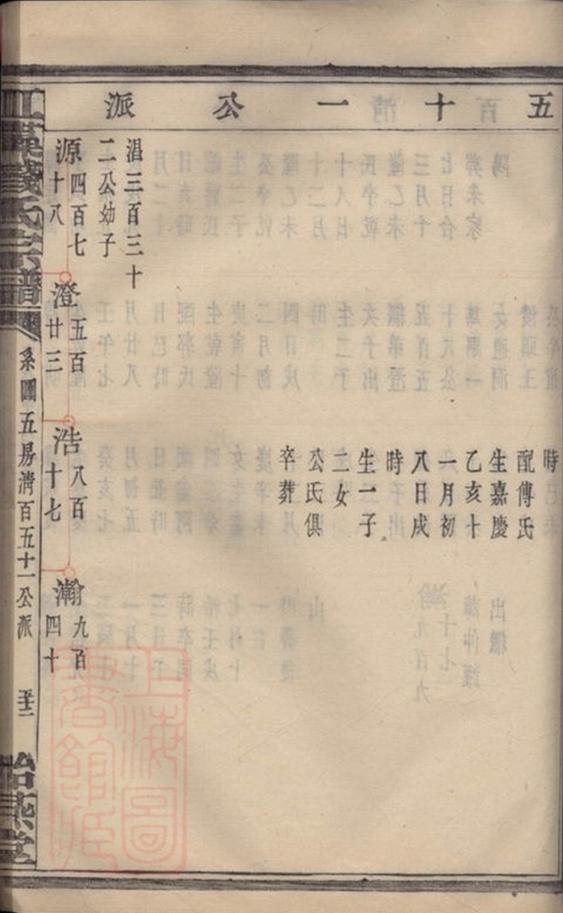 五十一公派
時
配傅氏
生嘉慶
乙亥十
一月初
八日戌
時
生一子
二女
公氏俱
卒葬
淐三百三十
二公幼子
源四百七十八
澄五百廿三
浩八百十七
瀚九百四十
錢氏宗譜
系圖五易清百五十一公派
怡燕堂
上海圖書館藏